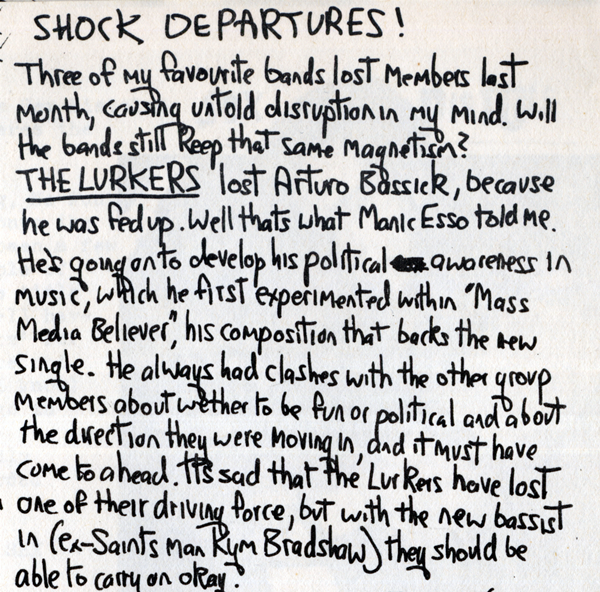 SHOCK DEPARTURES!
Three of my favourite bands lost Members last
Month, causing untold disruption in my mind. Will
the bands still keep that same Magnetism?
THE LURKERS lost Arturo Bassick, because
he was fed up. Well thats what Manic Esso told me.
He's going on to develop his political awareness in
Music, which he first experimented within "Mass
Media Believer", his composition that backs the new
single. He always had clashes with the other group
Members about wether to be fun or political and about
the direction they were moving in, and it must have
come to ahead. It's sad that the Lurkers have lost
one of their driving force, but with the new bassist
in (ex-Saints man Kym Bradshaw) they should be
able to carry on okay.